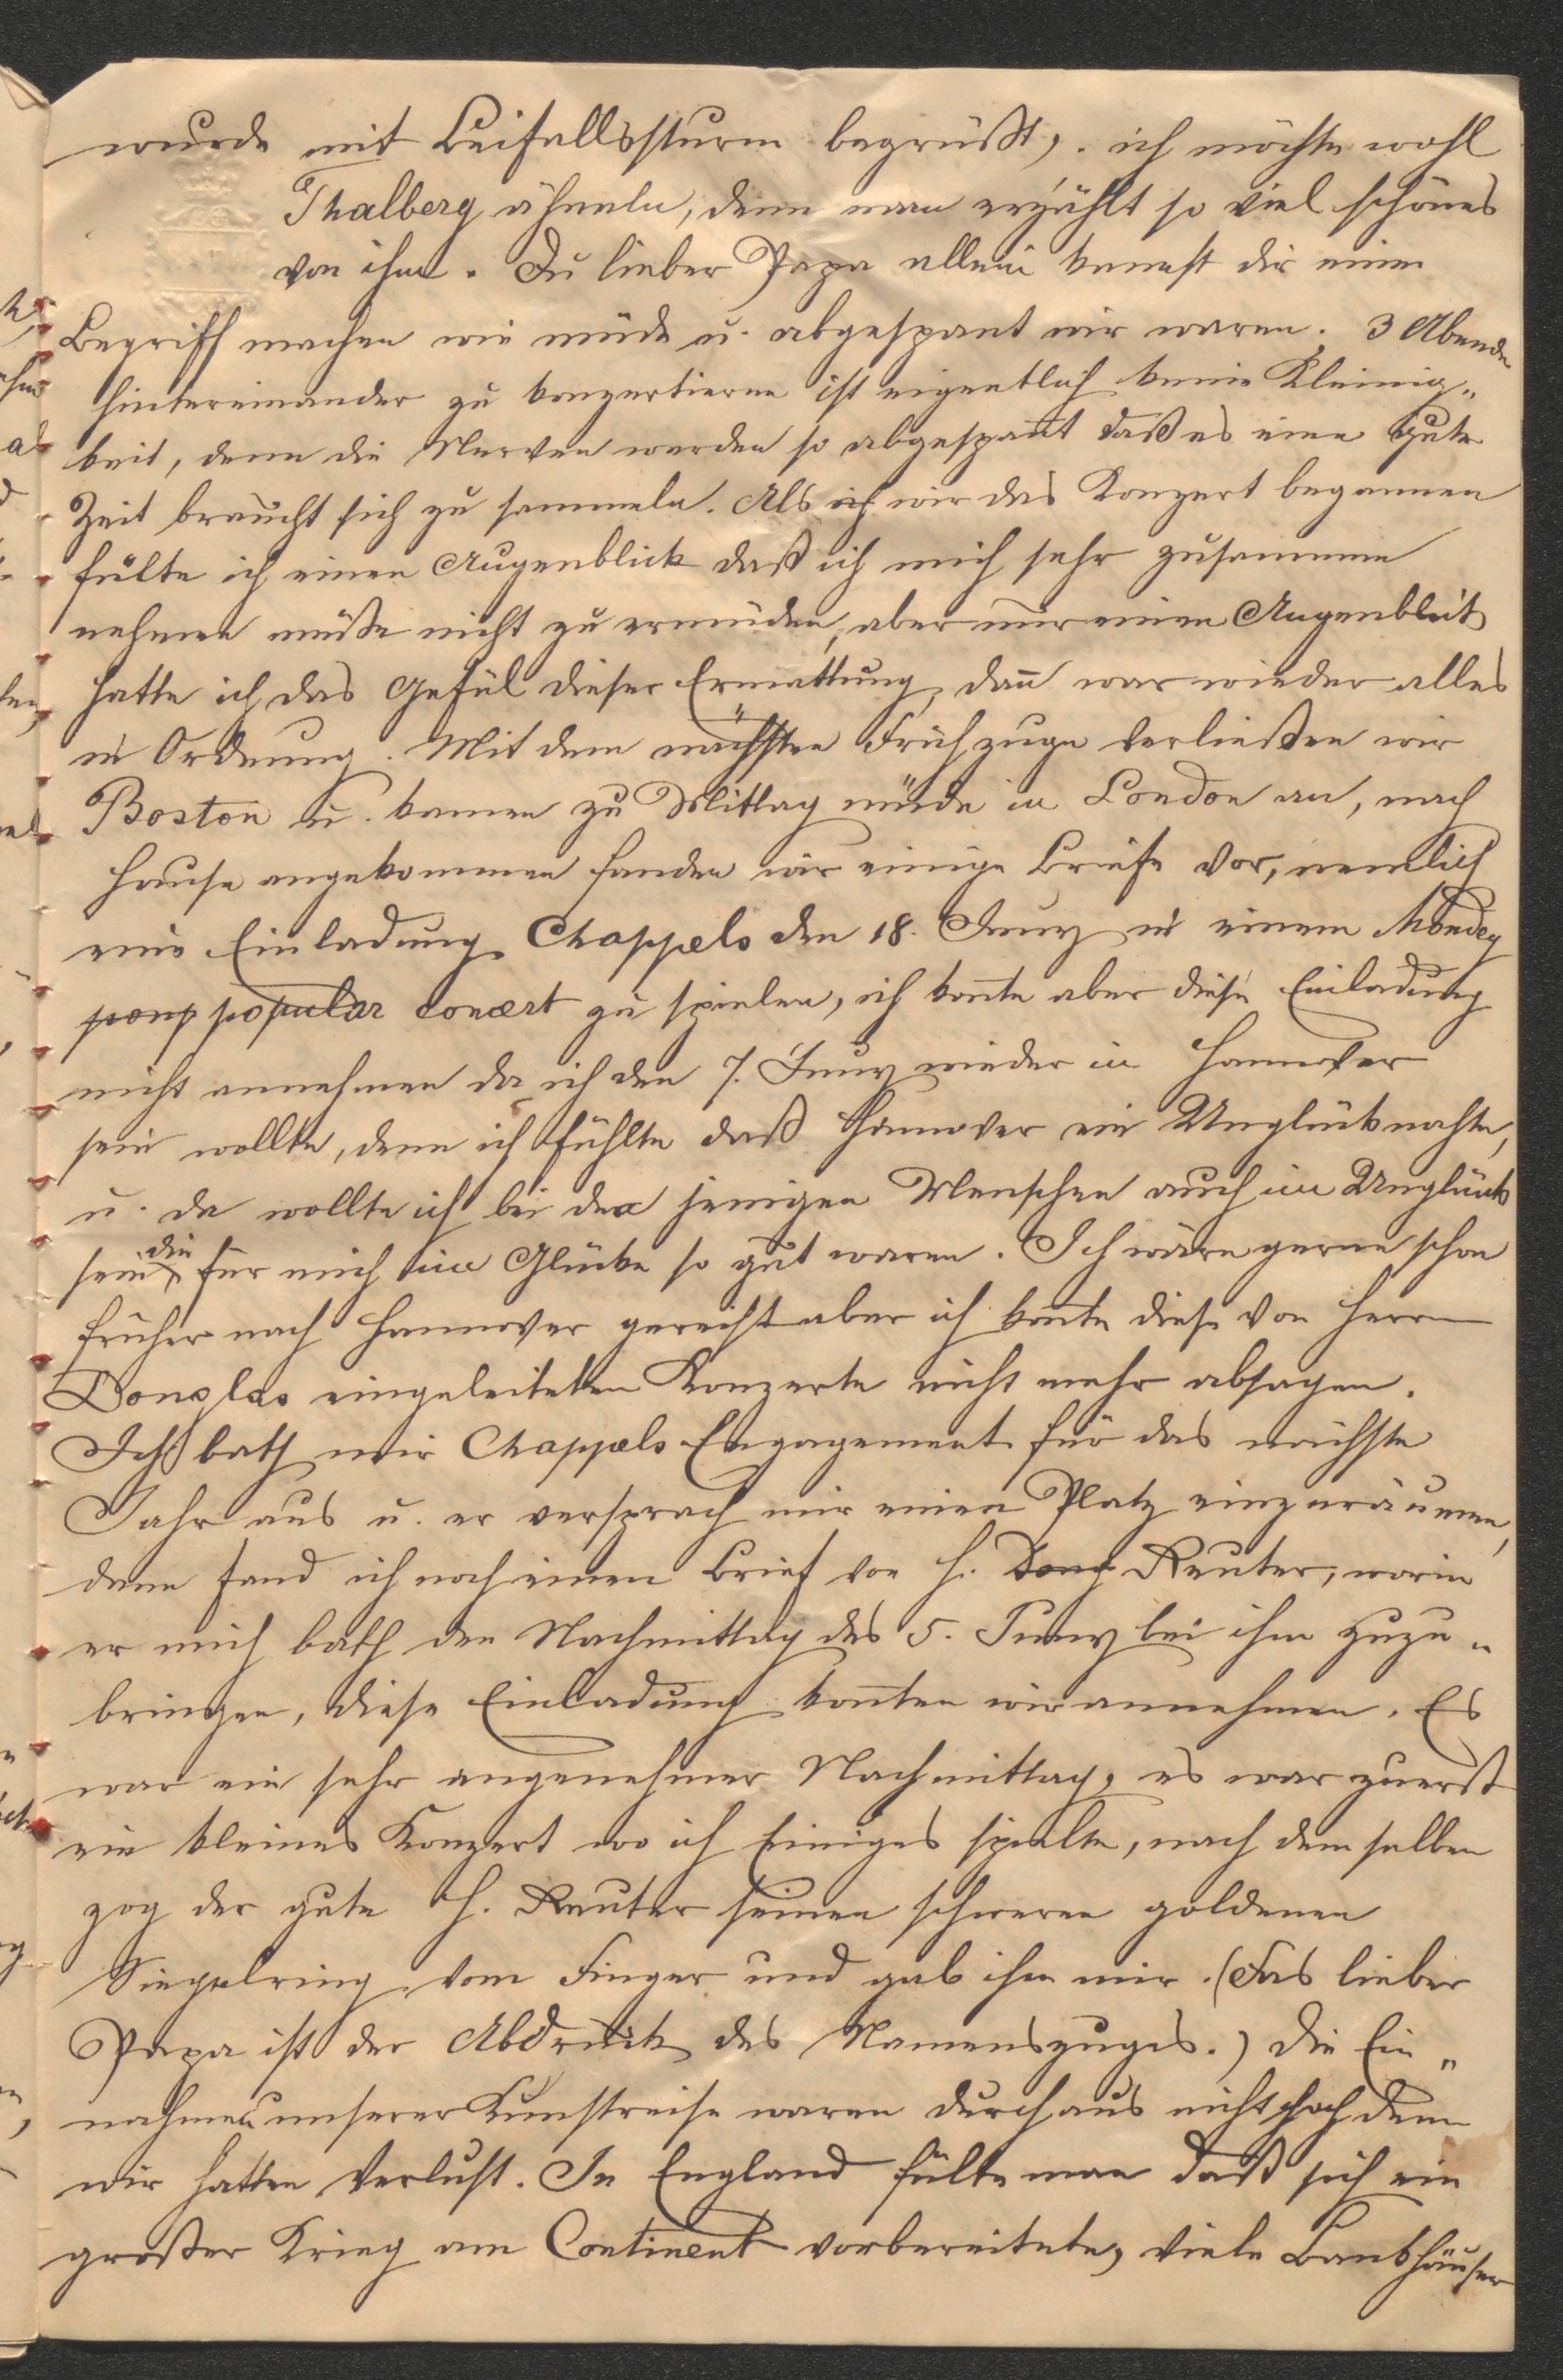 wurde mit Beifallssturm begrüßt, ich möchte wohl
Thalberg ähneln, denn man erzählt so viel schönes
von ihm. Du lieber Papa allein kannst dir einen
Begriff machen wie müde u. abgespant wir waren. 3 Abende
hintereinander zu konzertieren ist eigentlich keine Kleinig„
keit, denn die Nerven werden so abgespan̄t daß es eine gute
Zeit braucht sich zu sammeln. Als ich wir das Konzert begannen
fülte ich einen Augenblick daß ich mich sehr zusammen
nehmen müße nicht zu ermüden, aber nur einen Augenblick
hatte ich das Gefül dieser Ermattung, dan̄ war wieder alles
in Ordnung. Mit dem nächsten Frühzuge verließen wir
Boston u. kamen zu Mittag müde in London an, nach
Hause angekommen fanden wir einige Briefe vor, nemlich
eine Einladung Chappels den 18. Juny in einem Mondey
pop popular concert zu spielen, ich kon̄te aber diese Einladung
nicht annehmen da ich den 7. Juny wieder in Hannover
sein wollte, denn ich fühlte daß Hannover ein Unglück nahte,
u. da wollte ich bei den jenigen Menschen auch im Unglück
sein die für mich im Glücke so gut waren. Ich wäre gerne schon
früher nach Hannover gereist aber ich kon̄te diese von Herrn
Douglas eingeleiteten Konzerte nicht mehr absagen.
Ich bath mir Chappels Engagement für das nächste
Jahr aus u. er versprach mir einen Platz einzuräumen,
dann fand ich noch einen Brief von H. Reuter, worin
er mich bath den Nachmittag des 5. Juny bei ihm zuzu„
bringen, diese Einladung kon̄ten wir annehmen. Es
war ein sehr angenehmer Nachmittag, es war zuerst
ein kleines Konzert wo ich Einiges spielte, nach dem selben
zog der gute H. Reuter seinen schweren goldenen
Siegelring vom Finger und gab ihn mir. (Das lieber
Papa ist der Abdruck des Namenszuges.) Die Ein„
nahmen unserer Kunstreise waren durchaus nicht hoch denn
wir hatten Verlust. In England fülte man daß sich ein
großer Krieg am Continent vorbereitete, viele Bankhäuser